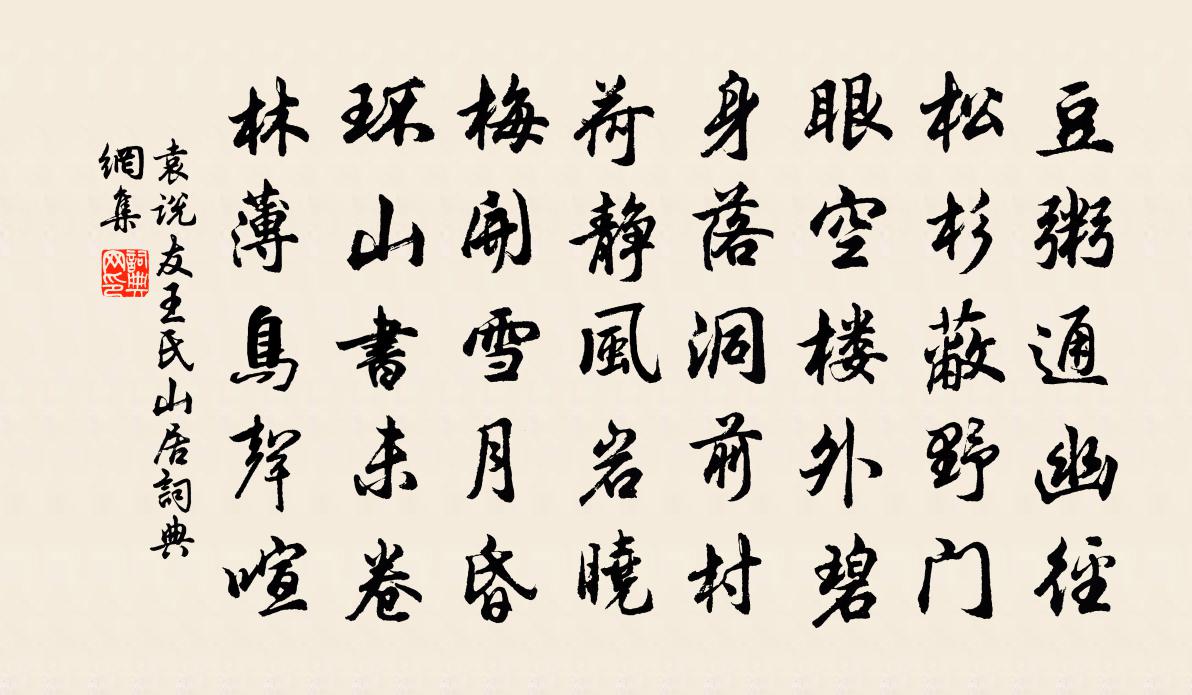 豆粥通幽徑
松杉蔽野门
眼空楼外碧
身落洞前村
荷静風岩曉
梅開雪月昏
环山書未卷
林薄鳥聲喧
袁说友王氏山居詞典
網集
詞典
网印